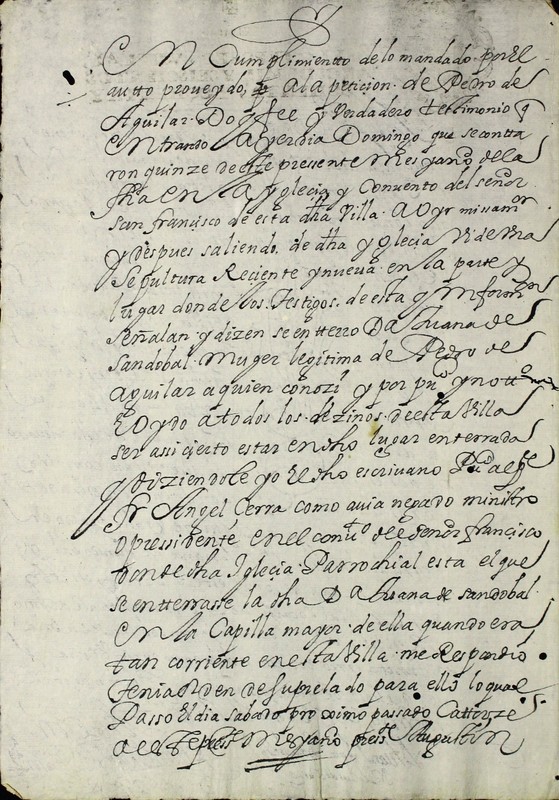 En Cumplimientto de lo mandado por El
autto proveydo, a la peticion de Pedro de
Aguilar Doy fee y Verdadero testimonio q
entrando Ayer dia Domingo que se contta
ron quinze deste presente mes y año de la
fha en la Yglecia y Convento del señor
san francisco de esta dha Villa a oyr missa mor
y despues saliendo de dha yglecia Vide Una
sepultura Reciente y nueva en la parte y
lugar donde los testigos de esta ynformon
señalan y dizen se entterro Da Juana de
Sandobal Muger legitima de Pedro de
Aguilar a quien conozi y por puco y nottorio
E oydo a todos los Vezinos de esta Villa
ser assi cierto estar en dho lugar enterrada
y diziendole yo El dho escrivano Puco al Pe
fr Angel Cerra como avia negado ministro
o pressidente en el convto del señor san francisco
donde dha Iglecia Parrochial esta el que
se entterrasse la dha Da Juana de Sandobal
en la Capilla mayor de ella quando era
tan corriente en esta Villa me Respondio
tenia orden de su prelado para ello lo qual
Passo El dia sabado proximo passado Cattorze
deste presete mes y año preste